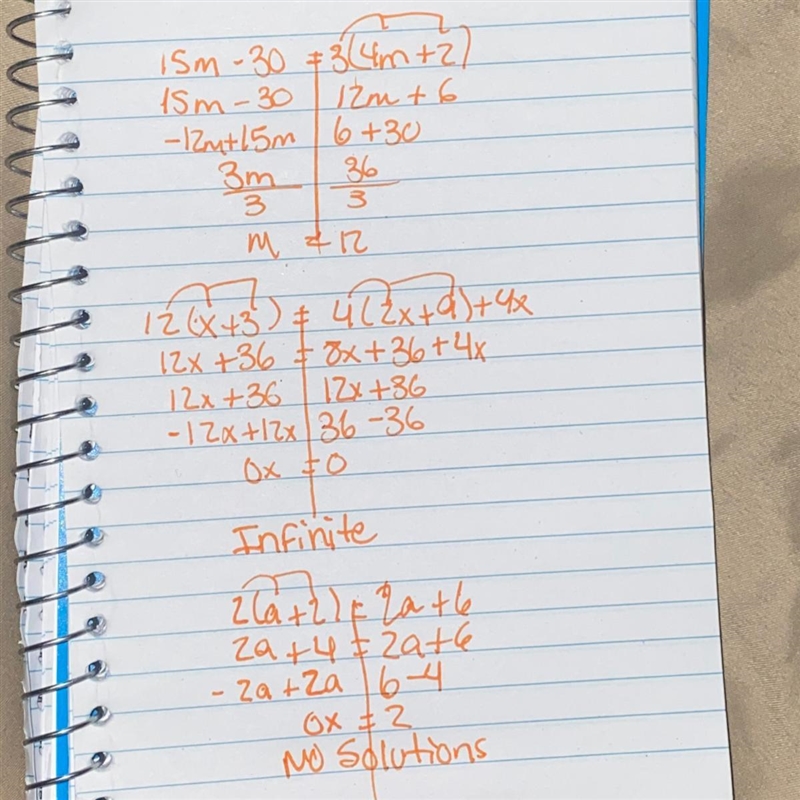 15m - 30 = 3(4m + 2)
15m - 30 | 12m + 6
-12m + 15m | 6 + 30
3m/3 | 36/3
m = 12
12(x + 3) = 4(2x + 9) + 4x
12x + 36 = 8x + 36 + 4x
12x + 36 | 12x + 36
-12x + 12x | 36 - 36
0x = 0
Infinite
2(a + 2) = 2a + 6
2a + 4 = 2a + 6
- 2a + 2a | 6 - 4
0x = 2
No Solutions